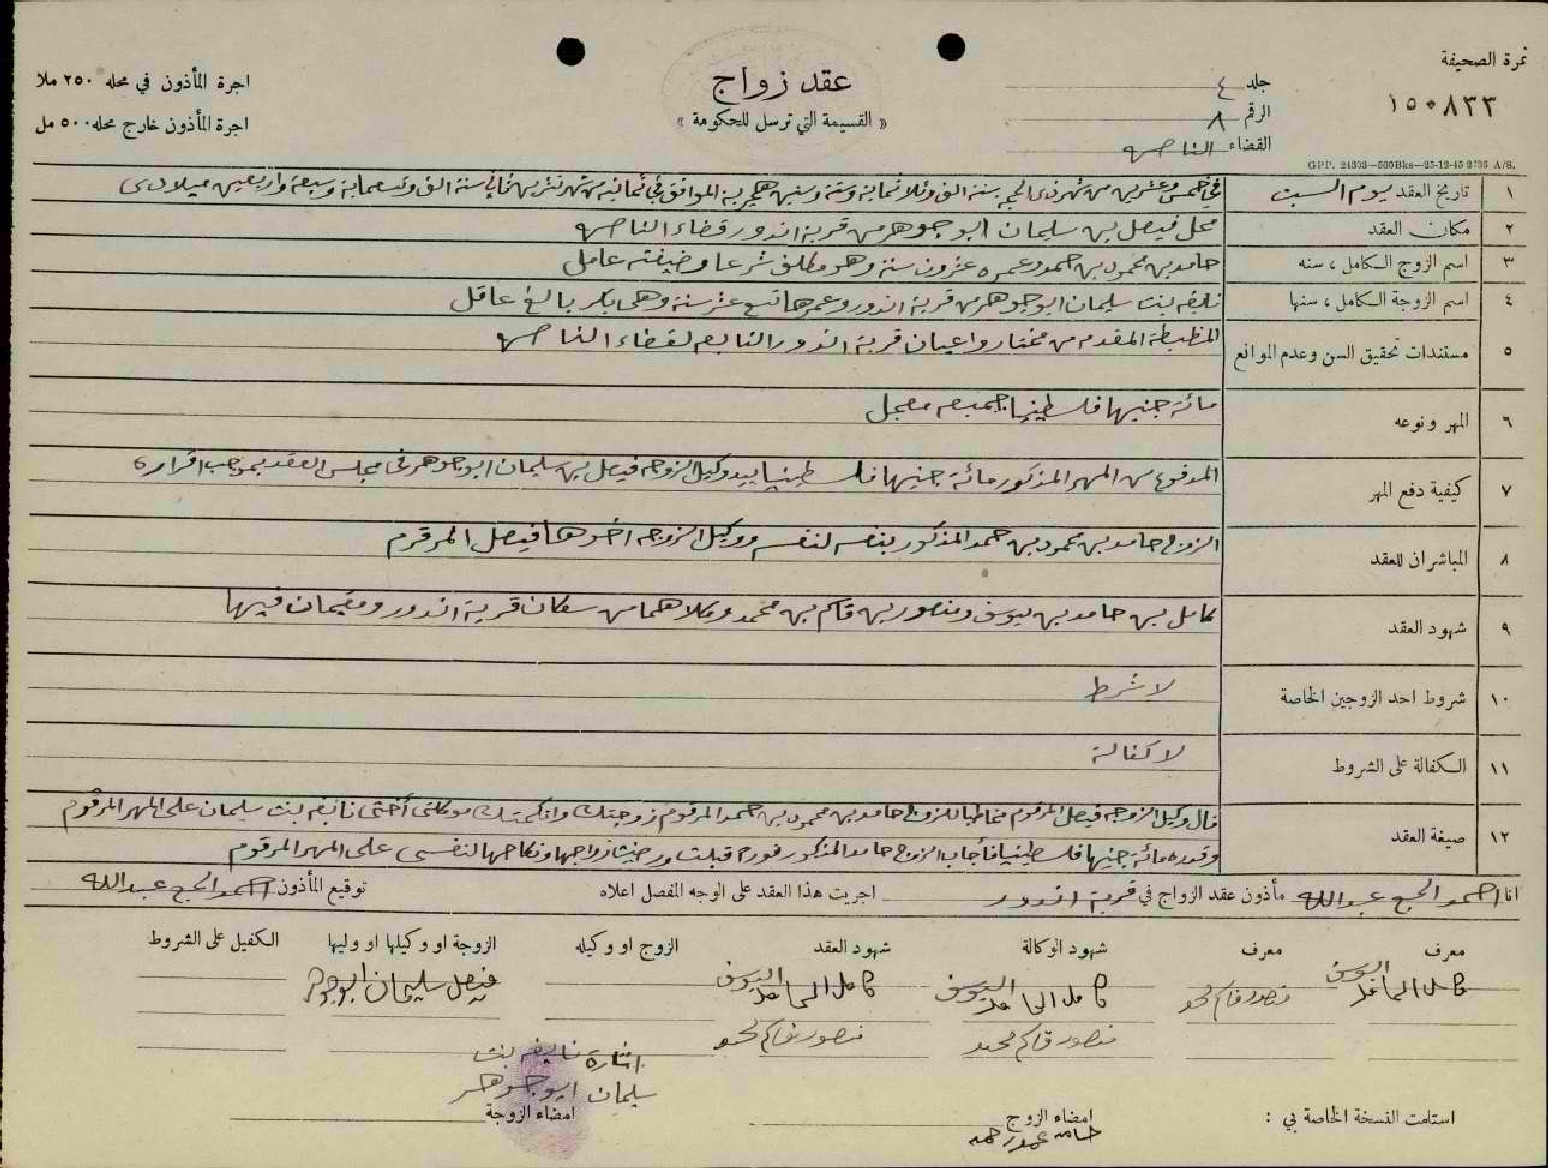 نمرة الصحيفة
١٥٠٨٣٣
جلد ٤
الرقم ٨
القضاء الناصره
عقد زواج
« القسيمة التي ترسل للحكومة »
اجرة المأذون في محله ٢٥٠ ملا
اجرة المأذون خارج محله ٥٠٠ مل
GPP. 24303—500Bks—25-12-45 A/S.
١ تاريخ العقد يوم السبت في خمس وعشرين من شهر ذي الحجه سنة الف وثلاثماية وستة وستين هجرية الموافق في ثمانية من شهر تشرين ثاني سنة الف وتسعماية وسبعة واربعين ميلادي
٢ مكان العقد محل فيصل بن سليمان ابو جوهر من قرية اندور قضاء الناصره
٣ اسم الزوج الكامل ، سنه حامد بن محمود بن حمد وعمره عشرون سنة وهو مطلق شرعا وضيفته عامل
٤ اسم الزوجة الكامل ، سنها نايفه بنت سليمان ابو جوهر من قرية اندور وعمرها تسع عشر سنة وهي بكر بالغ عاقل
٥ مستندات تحقيق السن وعدم الموانع المظبطة المقدمه من مختار واعيان قرية اندور التابعه لقضاء الناصره
٦ المهر ونوعه مائة جنيها فلسطينيا جميعه معجل
٧ كيفية دفع المهر المدفوع من المهر المذكور مائة جنيها فلسطينيا بيد وكيل الزوجه فيصل بن سليمان ابو جوهر في مجلس العقد بموجب اقراره
٨ المباشران للعقد الزوج حامد بن محمود بن حمد المذكور بنفسه لنفسه ووكيل الزوجه اخوها فيصل المرقوم
٩ شهود العقد كامل بن حامد بن يوسف ومنصور بن قاسم بن محمد وكلاهما من سكان قرية اندور ومقيمان فيها
١٠ شروط احد الزوجين الخاصة لا شرط
١١ الكفالة على الشروط لا كفالة
١٢ صيغة العقد قال وكيل الزوجه فيصل المرقوم مخاطبا للزوج حامد بن محمود بن حمد المرقوم زوجتك وانكحتك موكلتي أختي نايفه بنت سليمان على المهر المرقوم
وقدره مائة جنيها فلسطينيا فأجاب الزوج حامد المذكور فورا قبلت ورضيت زواجها ونكاحها لنفسي على المهر المرقوم
انا احمد الحج عبدالله مأذون عقد الزواج في قرية اندور اجريت هذا العقد على الوجه المفصل اعلاه توقيع المأذون احمد الحج عبدالله
معرف معرف شهود الوكالة شهود العقد الزوج او وكيله الزوجة او وكيلها او وليها الكفيل على الشروط
كامل الحامد اليوسف منصور قاسم محمد كامل الحامد اليوسف كامل الحامد اليوسف فيصل سليمان ابو جوهر
منصور قاسم محمد منصور قاسم محمد
اشارة نايفه بنت
سليمان ابو جوهر
استلمت النسخة الخاصة بي : امضاء الزوج امضاء الزوجة
حامد محمود حمد